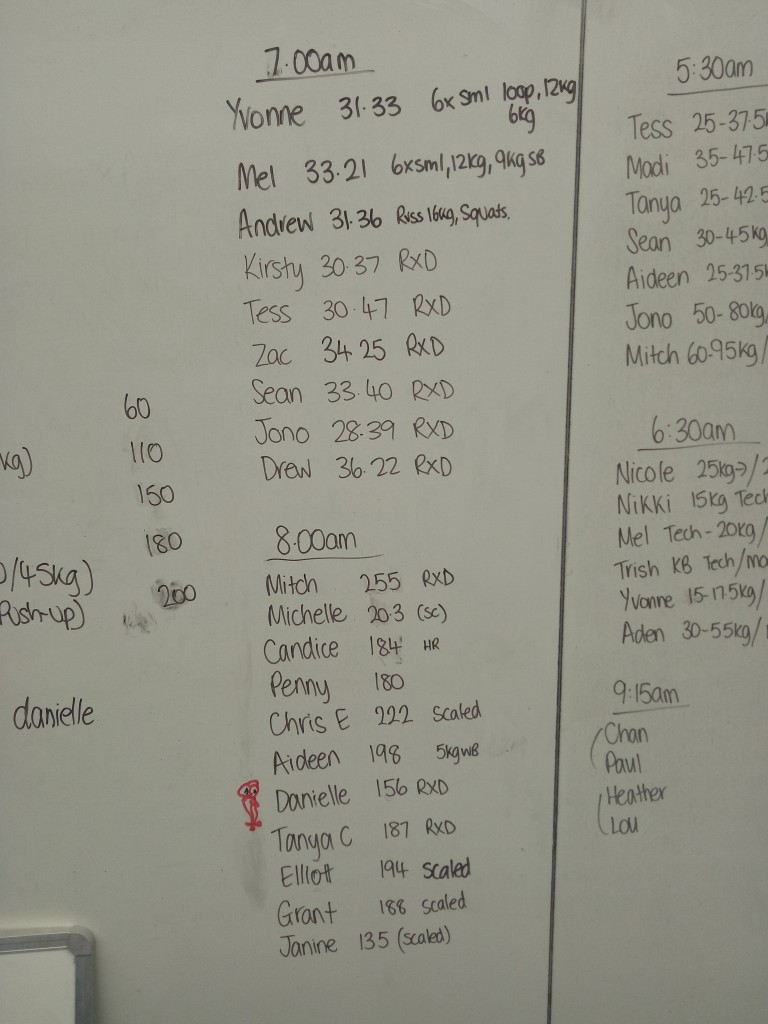 60
kg) 110
150
180
/45kg) 200
Push-up)
danielle
7.00am
Yvonne 31.33 6x sml loop, 12kg
6kg
Mel 33.21 6xsml, 12kg, 9kg SB
Andrew 31.36 16kg, Squats.
Kirsty 30.37 RXD
Tess 30.47 RXD
Zac 34.25 RXD
Sean 33.40 RXD
Jono 28.39 RXD
Drew 36.22 RXD
8.00am
Mitch 255 RXD
Michelle 20.3 (SC)
Candice 184 HR
Penny 180
Chris E 222 Scaled
Aideen 198 5kgWB
Danielle 156 RXD
Tanya C 187 RXD
Elliott 194 Scaled
Grant 188 Scaled
Janine 135 (Scaled)
5:30am
Tess 25-37.5
Madi 35-47.5
Tanya 25-42.5
Sean 30-45kg
Aideen 25-37.5
Jono 50-80kg/
Mitch 60-95kg/
6:30am
Nicole 25kg→/
Nikki 15kg Tech
Mel Tech-20kg/
Trish KB Tech/
Yvonne 15-17.5kg/
Aden 30-55kg/
9:15am
Chan
Paul
Heather
Lou